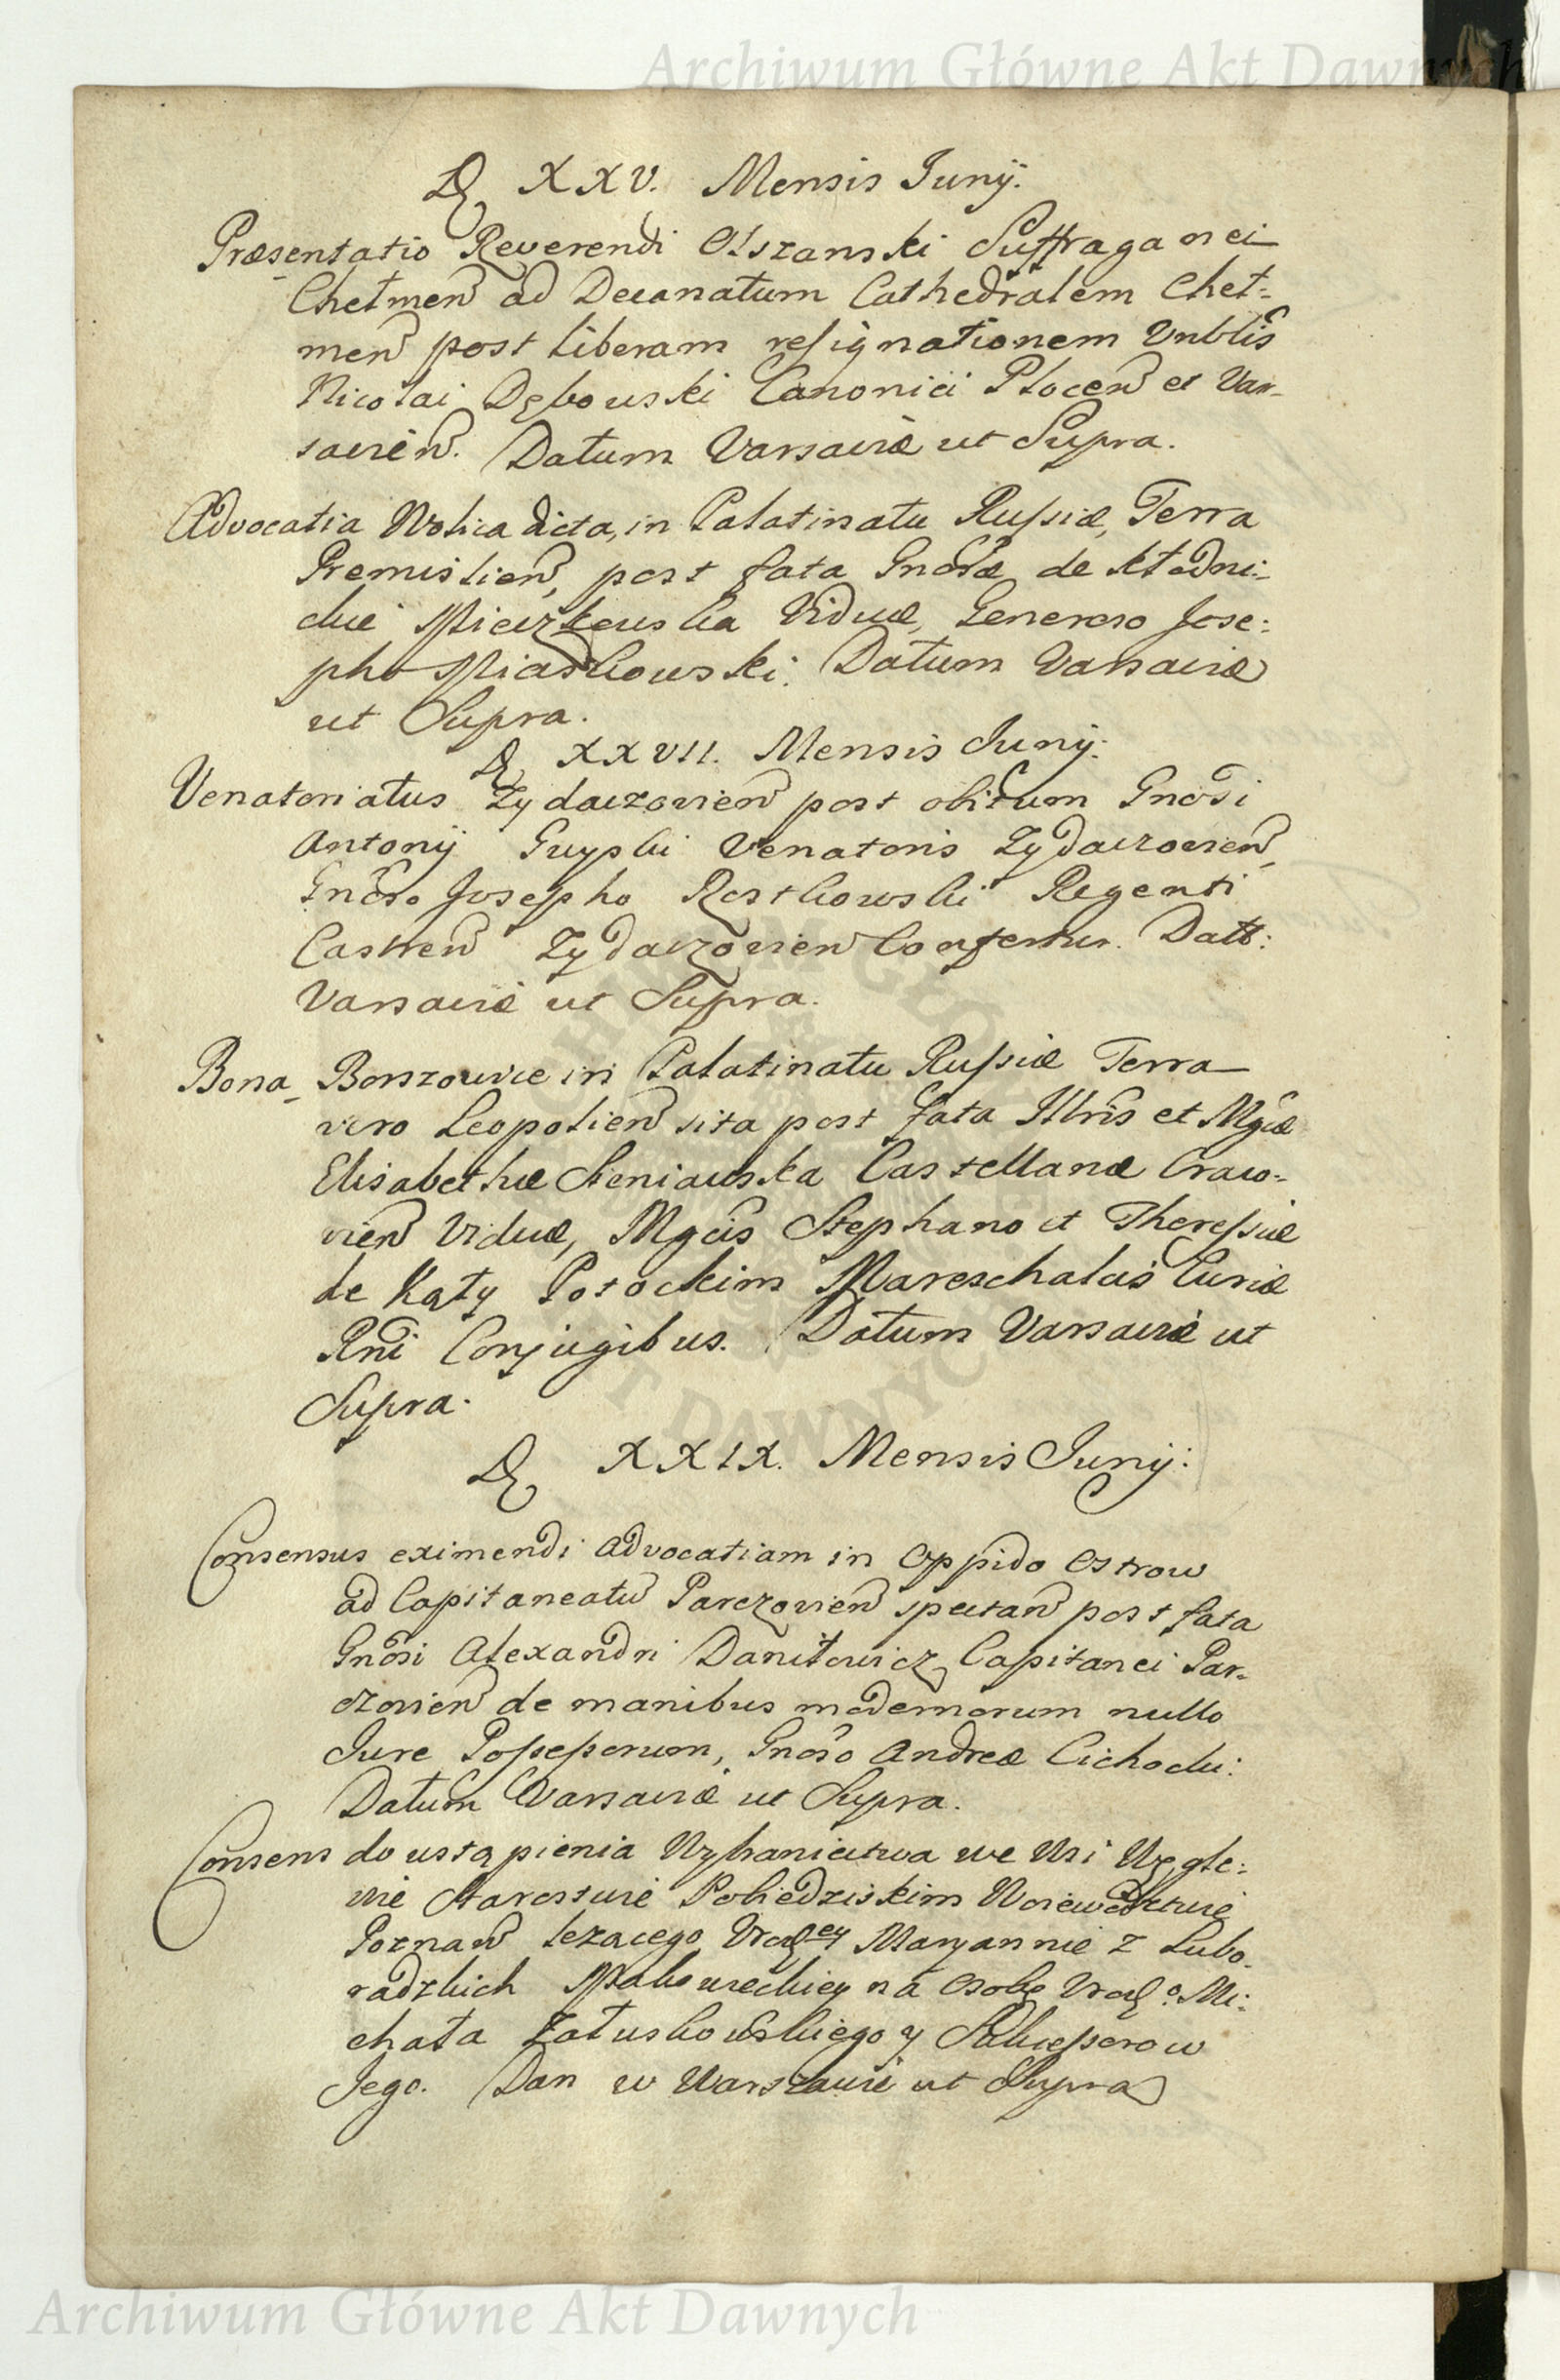 Archiwum Główne Akt Dawnych
D. XXV. Mensis Junij.
Præsentatio Reverendi Olszanski Suffraganei
Chełmen ad Decanatum Cathedralem Cheł-
men post liberam resignationem Vnblis
Nicolai Dębowski Canonici Płocen et Var-
savien. Datum Varsaviæ ut Supra.
Advocatia Wolica dicta, in Palatinatu Russiæ, Terra
Premislien, post fata Gnosæ de Kłodni-
cki Miaczkowska Viduæ, Generoso Jose-
pho Miaskowski. Datum Varsaviæ
ut Supra.
D. XXVII. Mensis Junij.
Venatoriatus Zydaczovien post obitum Gnosi
Antonij Venatoris Zydaczovien,
Gnoso Josepho Rostkowski Regenti
Castren Zydaczovien Confertur. Datt:
Varsaviæ ut Supra.
Bona Borszowice in Palatinatu Russiæ Terra
vero Leopolien sita post fata Illris et Mgcæ
Elisabethæ Sieniawska Castellanæ Craco-
vien Viduæ, Mgcis Stephano et Theressiæ
de Kąty Potockim Mareschalcis Curiæ
Rni Conjugibus. Datum Varsaviæ ut
Supra.
D. XXIX. Mensis Junij:
Consensus eximendi Advocatiam in Oppido Ostrow
ad Capitaneatu Parczovien spectan post fata
Gnosi Alexandri Daniłowicz Capitanei Par-
czovien de manibus modernorum nullo
Jure Possessorum, Gnoso Andreæ Cichocki.
Datum Varsaviæ ut Supra.
Consens do ustąpienia Wybraniectwa we Wsi Węgle-
wie Starostwie Pobiedziskim Woiewodztwie
Poznan lezacego Vrodzey Maryannie z Lubo-
radzkich na Osobę Vrodzo Mi-
chała Załuskowskiego y Sukcessorow
Jego. Dan w Warszawie ut Supra
Archiwum Główne Akt Dawnych